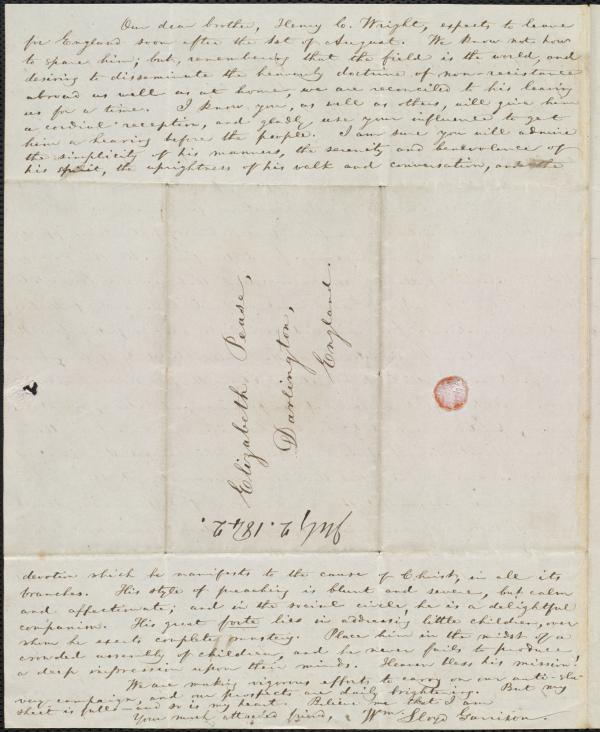 Our dear brother, Henry C. Wright, expects to leave
for England soon after the 1st of August. We know not how
to spare him; but, remembering that the field is the world, and
desiring to disseminate the heavenly doctrine of non-resistance
abroad as well as at home, we are reconciled to his leaving
us for a time. I know you, as well as others, will give him
a cordial reception, and gladly use your influence to get
him a hearing before the people. I am sure you will admire
the simplicity of his manners, the serenity and benevolence of
his spirit, the uprightness of his walk and conversation, and the
Elizabeth Pease,
Darlington,
England.
July 2. 1842.
devotion which he manifests to the cause of Christ, in all its
branches. His style of preaching is blunt and severe, but calm
and affectionate; and in the social circle, he is a delightful
companion. His great forte lies in addressing little children, over
whom he exerts complete mastery. Place him in the midst of a
crowded assembly of children, and he never fails to produce
a deep impression upon their minds. Heaven bless his mission!
We are making vigorous efforts to carry on our anti-sla-
very campaign, and our prospects are daily brightening. But my
sheet is full — and so is my heart. Believe me that I am
Your much attached friend, Wm. Lloyd Garrison.